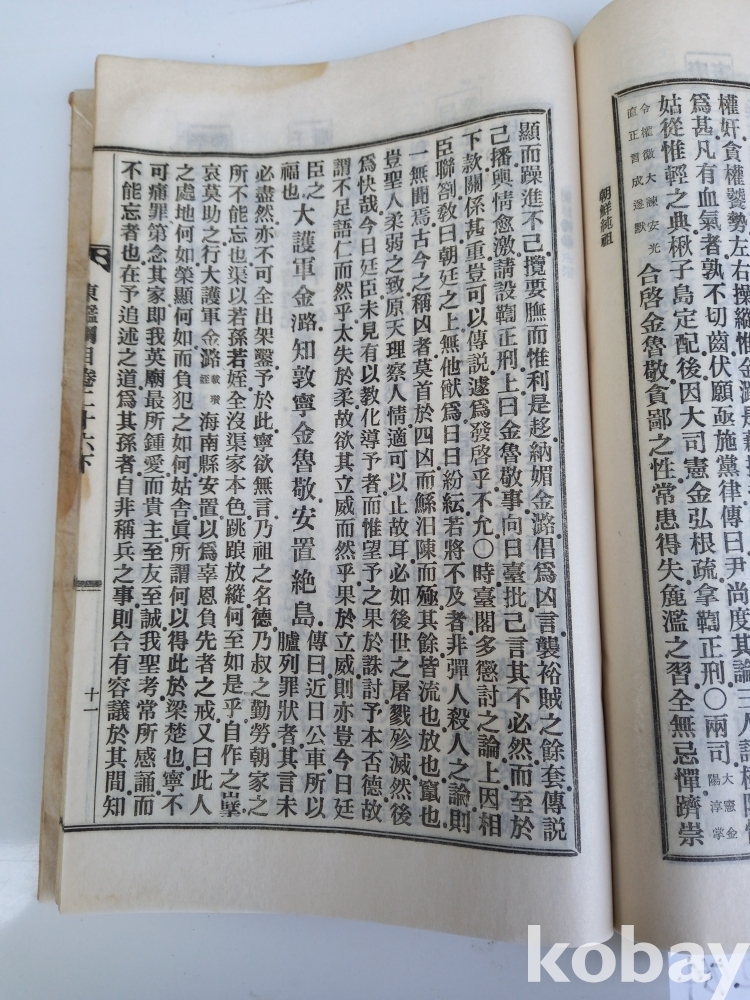 權奸貪權饕勢左右操縱惟金潞是
爲甚凡有血氣者孰不切齒伏願亟施黨律傳曰尹尙度其論三人請極
姑從惟輕之典楸子島定配後因大司憲金弘根疏拿鞫正刑〇兩司大憲金陽淳掌
令權徽大諫安光直正言成遂默合啓金魯敬貪鄙之性常患得失麁濫之習全無忌憚躋崇
朝鮮純祖
顯而躁進不己攬要膴而惟利是趍納媚金潞倡爲凶言襲裕賊之餘套傳說
己播輿情愈激請設鞫正刑上曰金魯敬事向日臺批己言其不必然而至於
下款關係甚重豈可以傳說遽爲發啓乎不允〇時臺閣多懲討之論上因相
臣聯劄敎曰朝廷之上無他猷爲日日紛紜若將不及者非彈人殺人之論則
一無聞焉古今之稱凶者莫首於四凶而鯀汨陳而殛其餘皆流也放也竄也
豈聖人柔弱之致原天理察人情適可以止故耳必如後世之屠戮殄滅然後
爲快哉今日廷臣未見有以敎化導予者而惟望予之果於誅討予本否德故
謂不足語仁而然乎太失於柔故欲其立威而然乎果於立威則亦豈今日廷
臣之福也
大護軍金潞知敦寧金魯敬安置絶島傳曰近日公車所以臚列罪狀者其言未
必盡然亦不可全出架鑿予於此寧欲無言乃祖之名德乃叔之勤勞朝家之
所不能忘也渠以若孫若姪全沒渠家本色跳踉放縱何至如是乎自作之孼
哀莫助之行大護軍金潞載瓚姪海南縣安置以爲辜恩負先者之戒又曰此人
之處地何如榮顯何如而負犯之如何姑舍眞所謂何以得此於梁楚也寧不
可痛罪第念其家即我英廟最所鍾愛而貴主至友至誠我聖考常所感誦而
不能忘者也在予追述之道爲其孫者自非稱兵之事則合有容議於其間知
東鑑綱目卷二十六下
十一
kobay